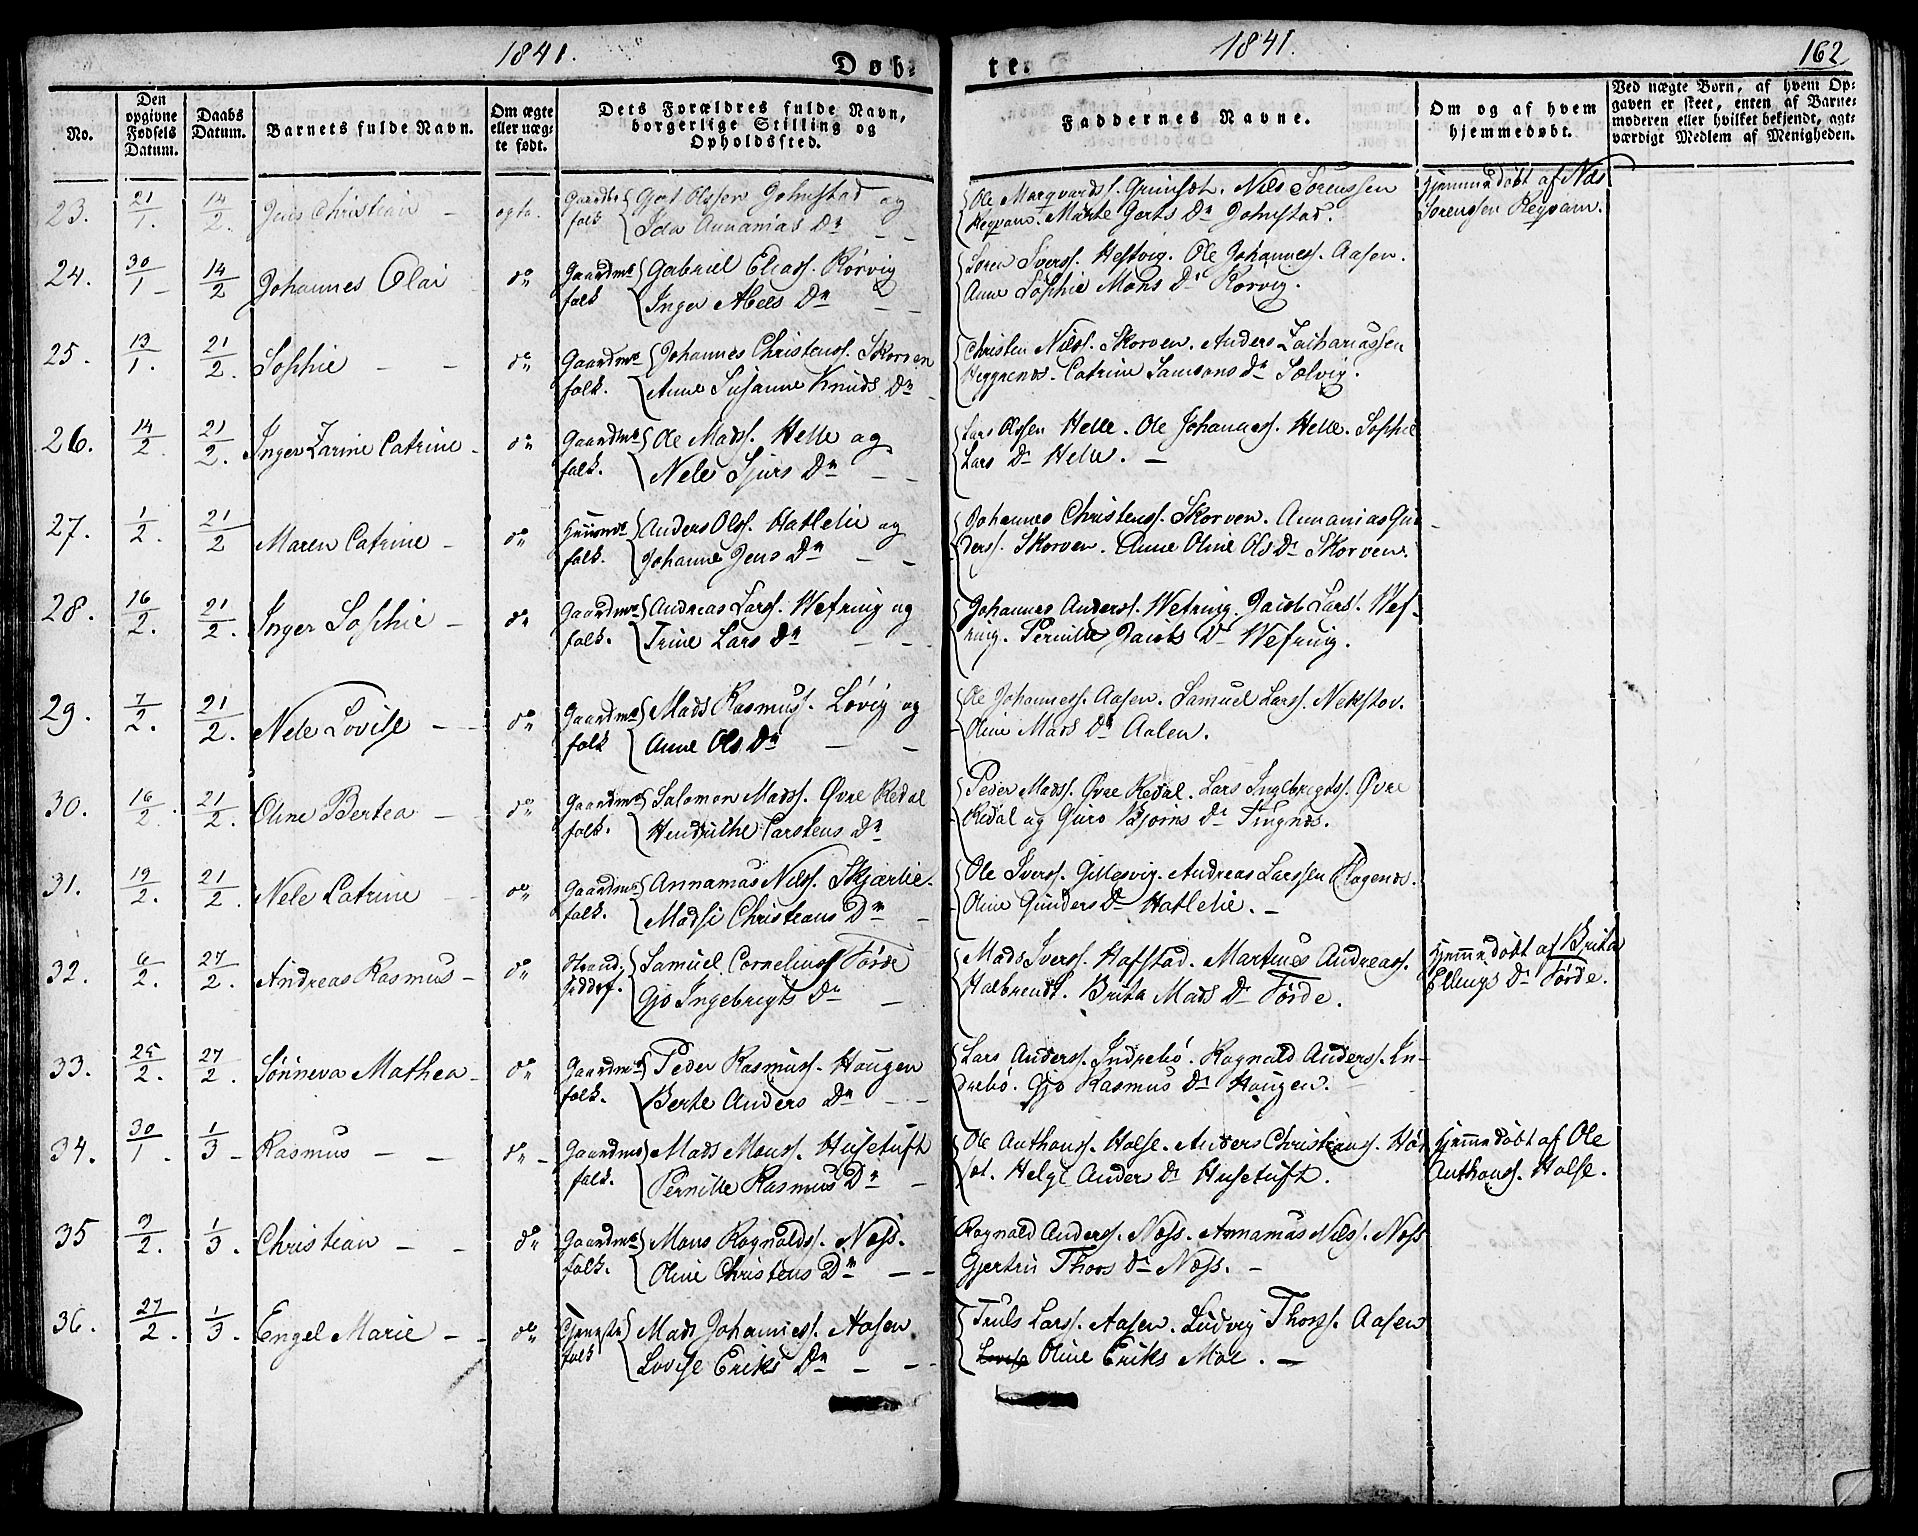 1841.
Døb-
te.
1841.
162
No.
Den opgivne Fødsels Datum.
Daabs Datum.
Barnets fulde Navn.
Om ægte eller uæg-te født.
Dets Forældres fulde Navn, borgerlige Stilling og Opholdssted.
Faddernes Navne.
Om og af hvem hjemmedøbt.
Ved uægte Børn, af hvem Op-
gaven er skeet, enten af Barne-
moderen eller hvilket bekjendt, agt-
værdigt Medlem af Menigheden.
23. 21/1. 14/2. Jens Christian - ægte. Gaardm folk Olssen og
Ida Annanias Dr - -
Ole Nils Sørenssen
Marthe Gerts Dr
Hjemmedøbt af Nils
Sørenssen
24. 30/1 14/2 Johannes Olai do Gaardmd folk Gabriel Eliass. Rørvig
Inger Abels Dr - -
Søren Iverss. Hestvig. Ole Johanness. Aasen.
Anne Sophie Mons Dr Rørvig.
25. 13/1. 21/2. Sophie - - do Gaardmd folk. Johannes Christenss. Skorven
Anne Susanne Knuds Dr -
Christen Nilss. Skorven. Anders Zachariassen
Heggenes. Catrine Samsons Dr Solvig.
26. 14/2. 21/2. Inger Zarine Catrine - do Gaardmd folk. Ole Madss. Helle og
Nele Sjurs Dr - -
Lars Olssen Helle. Ole Johanness. Helle. Sophie
Lars Dr Helle. -
27. 1/2. 21/2 Maren Catrine - do Huusmd folk. Anders Olss. Hatlelie og
Johanne Jens Dr - -
Johannes Christenss. Skorven. Annanias Gun-
ders. Skorven. Anne Oline Ols Dr Skorven.
28. 16/2. 21/2. Inger Sophie - do Gaardmd folk. Andreas Larss. Wefring og
Trine Lars Dr - -
Johannes Anderss. Wefring. Jacob Larss. Wef-
ring. Pernille Jacobs Dr Wefring.
29. 7/2. 21/2. Nele Lovise - - do Gaardmd folk Mads Rasmuss. Løvig og
Anne Ols Dr - -
Ole Johanness. Aasen. Samuel Larss. Nekstøv.
Oline Mads Dr Aalen.
30. 16/2. 21/2. Oline Bertea - do Gaardmd folk. Salomon Madss. Øvre Redal
Carstens Dr
Peder Madss. Øvre Redal. Lars Ingebrigts. Øvre
Redal og Guro Bjørns Dr Tingnes.
31. 19/2. 21/2. Nele Catrine - do Gaardmd folk. Annanias Nilss. Skjærlie.
Madsi Christians Dr -
Ole Iverss. Gillesvig. Andreas Larssen
Oline Gunders Dr Hatlelie. -
32. 6/2. 27/2. Andreas Rasmus - do Strand Samuel Corneliuss Førde
Gjo Ingebrigts Dr -
Mads Iverss. Hafstad. Martinus Andreass.
Halbrendt. Brita Mads Dr Førde.
Hjemmedøbt af Brita
Ellings Dr Førde.
33. 25/2. 27/2. Sønneva Mathea - do Gaardmd folk. Peder Rasmuss. Hougen
Berte Anders Dr - -
Lars Anderss. Indrebø. Ragnald Anderss. In-
drebø. Gjo Rasmus Dr Hougen.
34. 30/1. 1/3 - Rasmus - - do - Gaardmd folk. Mads Monss. Husetuft
Pernille Rasmus Dr -
Ole Anthons. Halse. Anders Christians.
Helge Anders Dr Husetuft.
Hjemmedøbt af Ole
Anthons. Halse.
35 9/2. 1/3. Christian - - do Gaardmd folk. Mons Ragnaldss. Næss.
Oline Christens Dr - -
Ragnald Anderss. Næss. Annanias Nilss. Næss
Gjertru Thors Dr Næss. -
36. 27/2. 1/3. Engel Marie - - do Tjeneste folk Mads Johanness. Aasen
Lovise Eriks Dr - -
Truls Larss. Aasen. Ludvig Thors. Aasen
Lovise Oline Eriks Moe. -